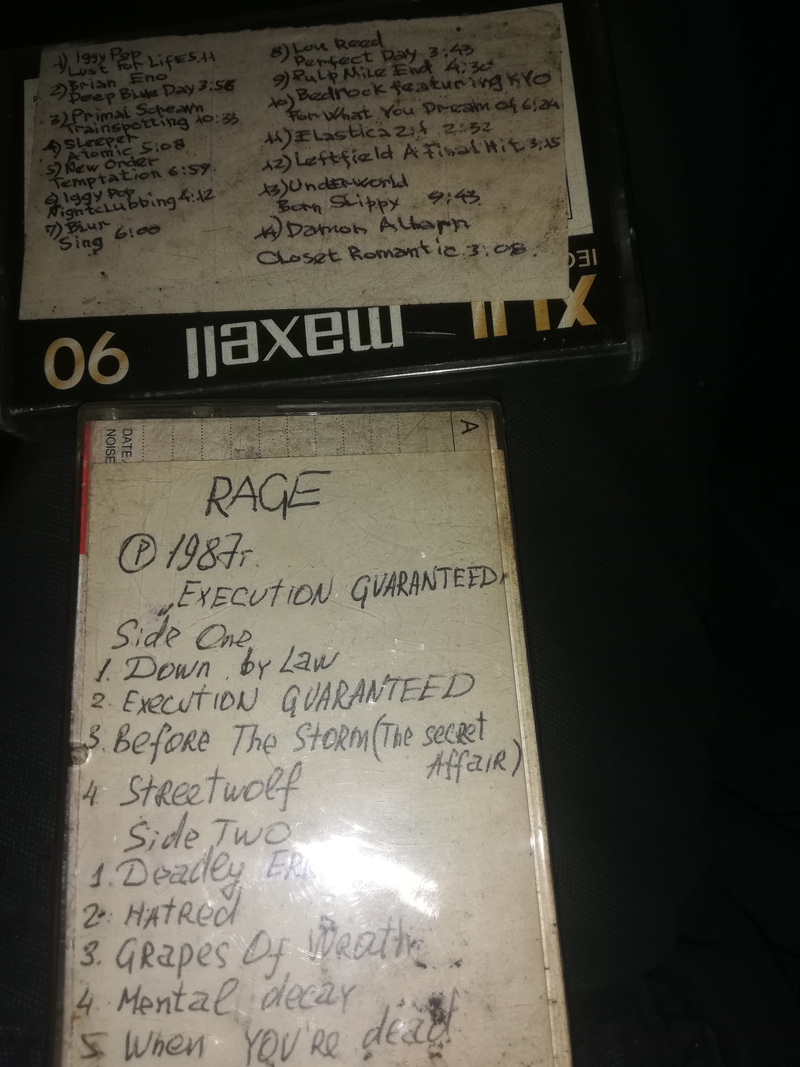 1) Iggy Pop
Lust for Life 5.11
2) Brian Eno
Deep Blue Day 3:56
3) Primal Scream
Trainspotting 10:33
4) Sleeper
Atomic 5:08
5) New Order
Temptation 6:59
6) Iggy Pop
Nightclubbing 4:12
7) Blur
Sing 6:00
8) Lou Reed
Perfect Day 3:43
9) Pulp Mile End 4:30
10) Bedrock featuring KYO
For What You Dream Of 6:24
11) Elastica 2:1 2:32
12) Leftfield A Final Hit 3:15
13) Underworld
Born Slippy 9:43
14) Damon Albarn
Closet Romantic 3:08
IEC
XLII
maxell
90
DATE
NOISE
A
RAGE
Ⓟ 1987г.
„EXECUTION GUARANTEED"
Side One
1. Down by Law
2. EXECUTION GUARANTEED
3. Before The Storm (The secret
Affair)
4 Streetwolf
Side Two
1. Deadly
2. Hatred
3. Grapes Of Wrath
4. Mental decay
5 When YOU'Re dead